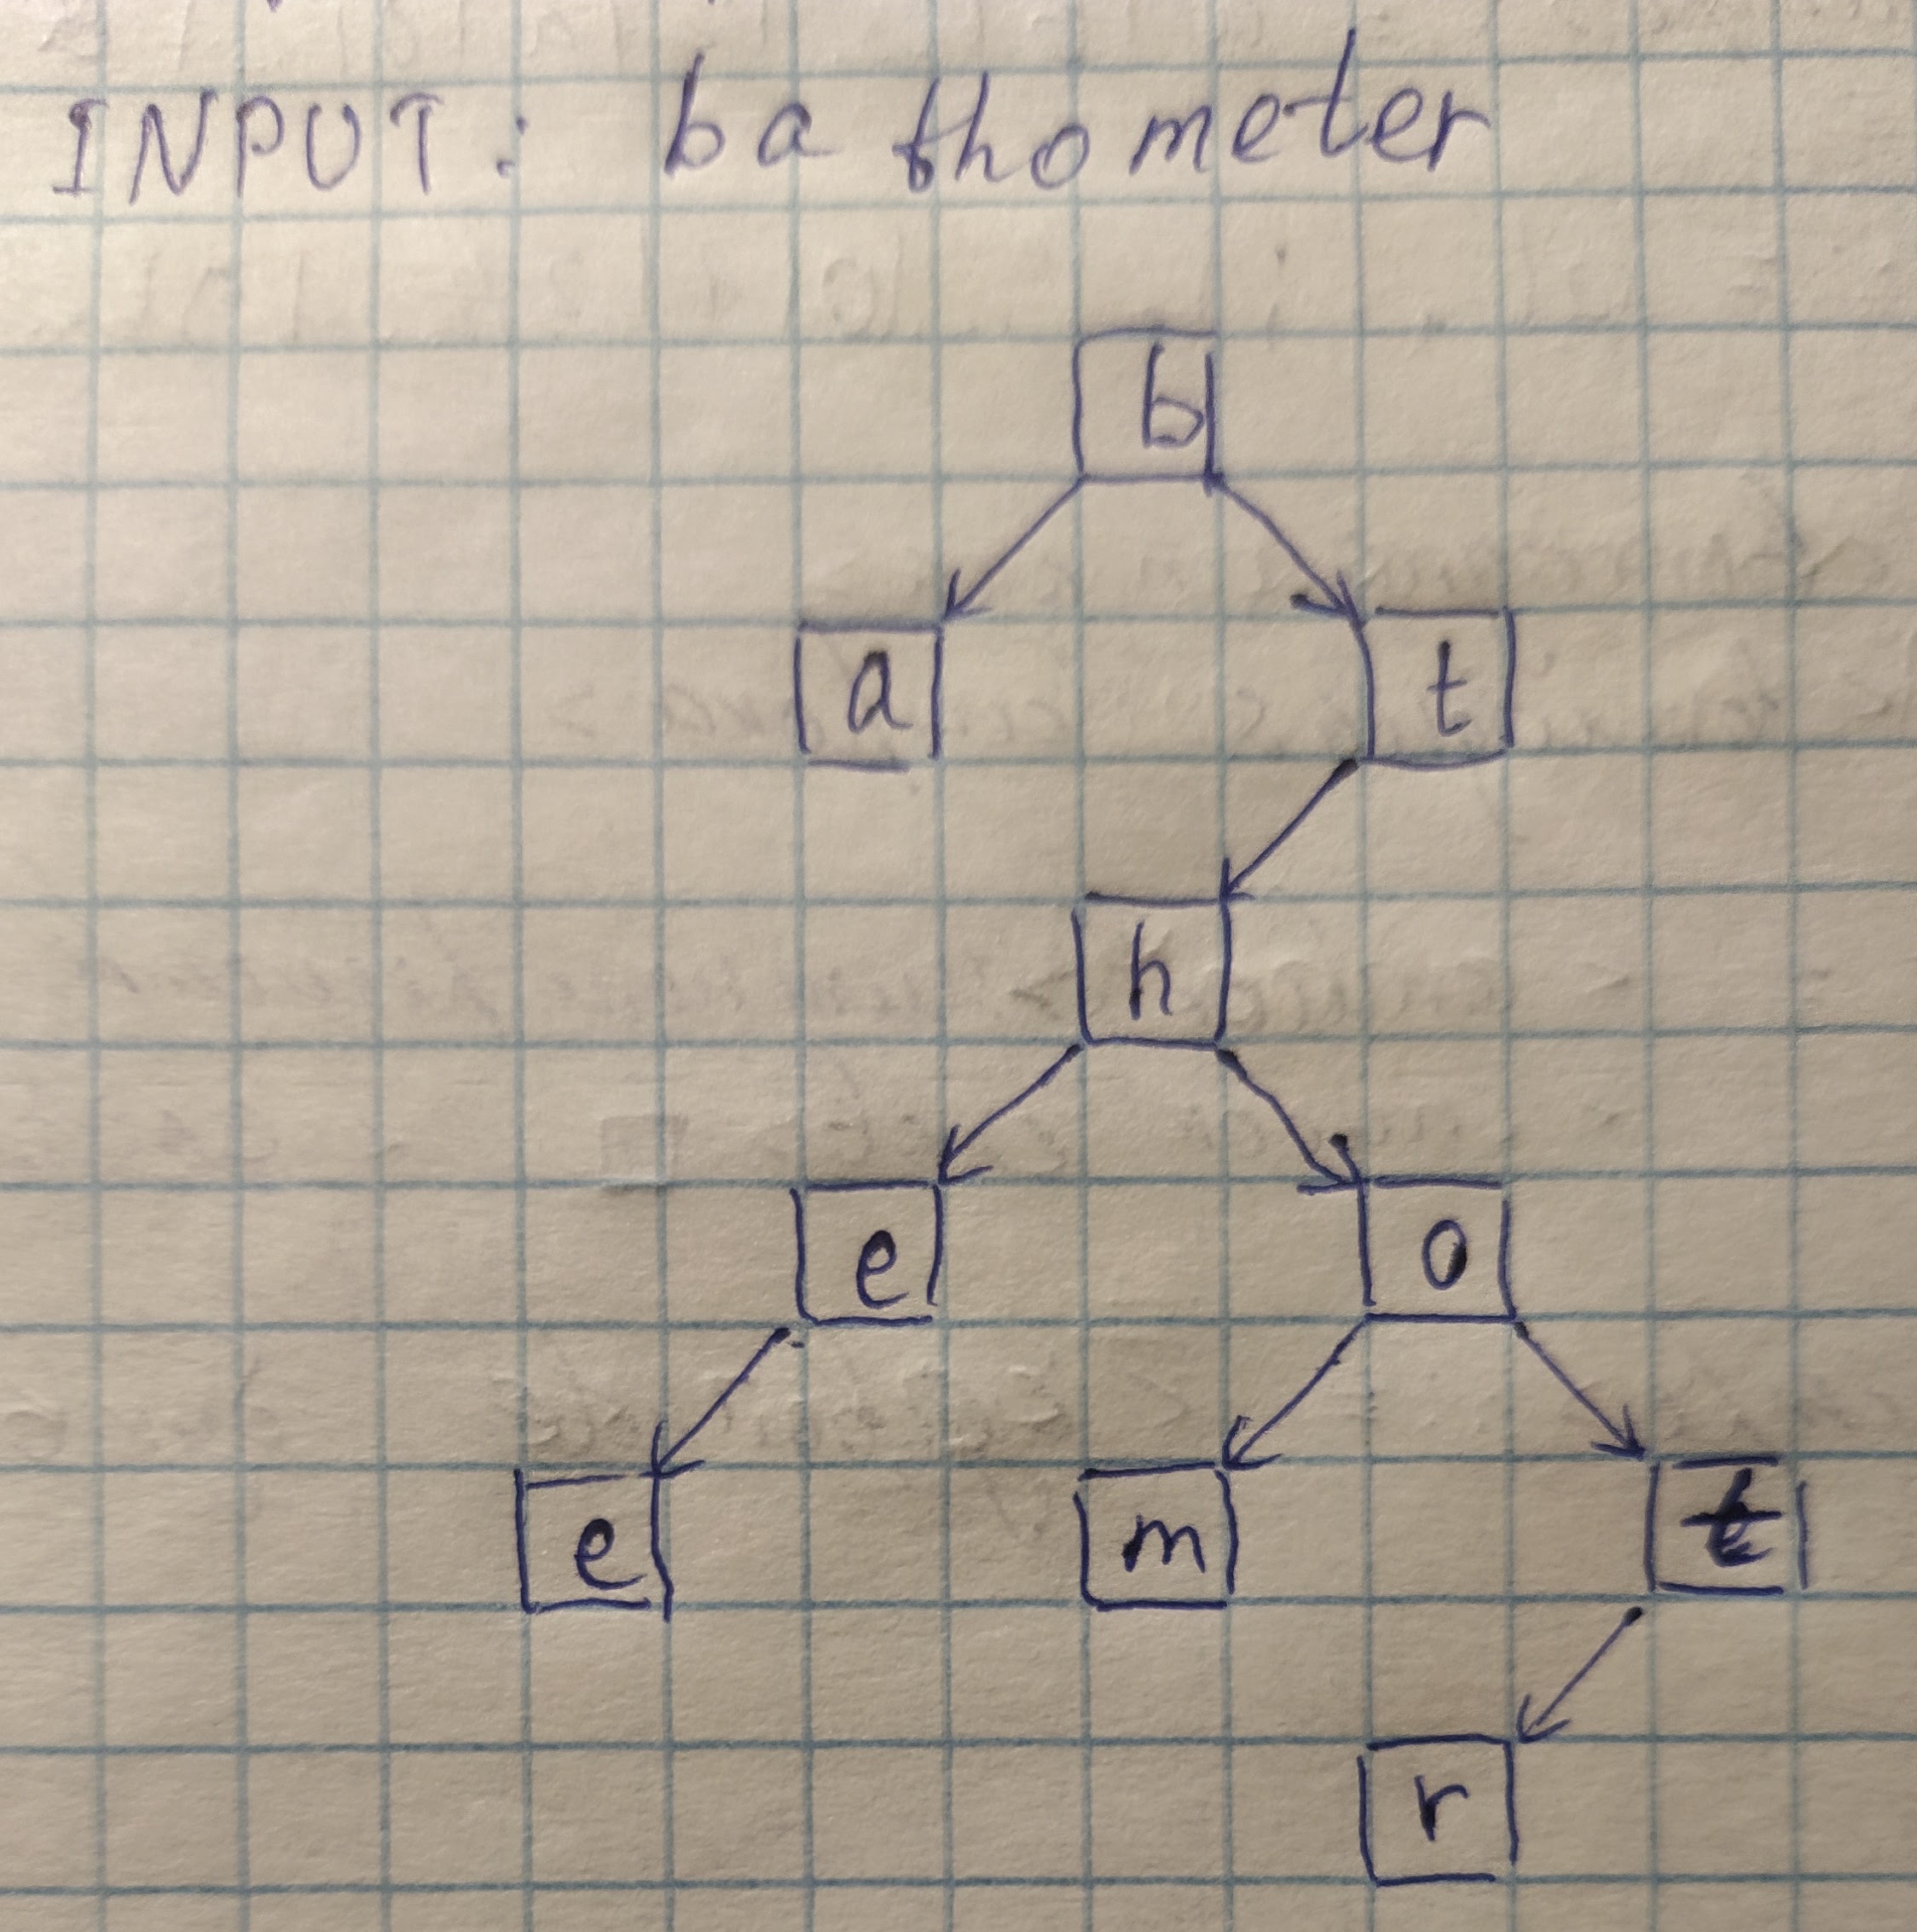 INPUT: bathometer
b
a t
h
e o
e m t
r